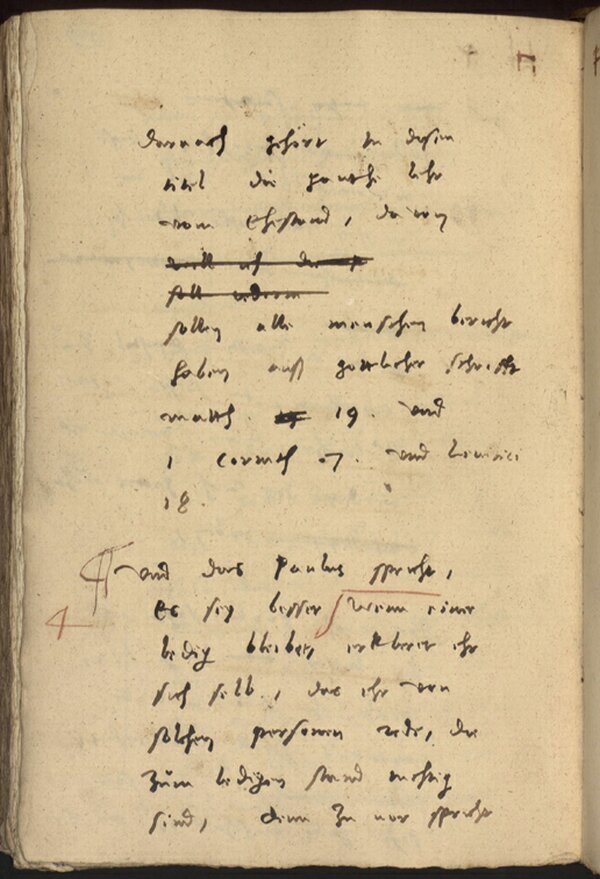 darnach gehört in disen
titel die gantze lehr
vom Ehestand, davon
will ich
soll
sollen alle menschen bericht
haben auß gottlicher schrifft
matth 19. und
1 corinth 7. und levitici
18.
und das Paulus spricht,
es sey besser wenn einer
ledig bleibe, erkleret ehr
sich selb, das ehr von
solchen personen rede, die
zum ledigen stand nichtig
sind, denn zuvor spricht